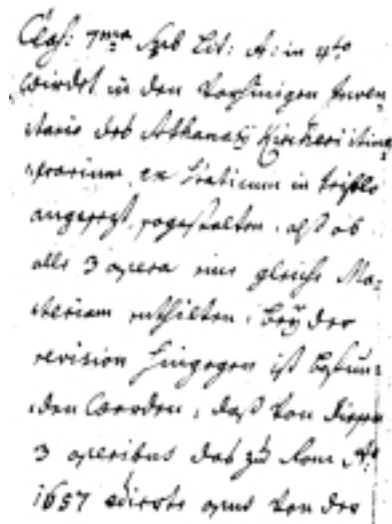 Class: 7ma Sub Lit: A: in 4to
wirdet in den vorhinigen Inven-
tario des Athanasÿ Kircheri Itine-
rarium ex staticum in triplo
angesezt, sogestalten, alß ob
alle 3 opera eine gleiche Ma-
teriam enthielten, beÿ der
revision hingegen ist befun-
den worden, daß von diesen
3 operibus das zu Rom Ao
1657 edierte opus von der